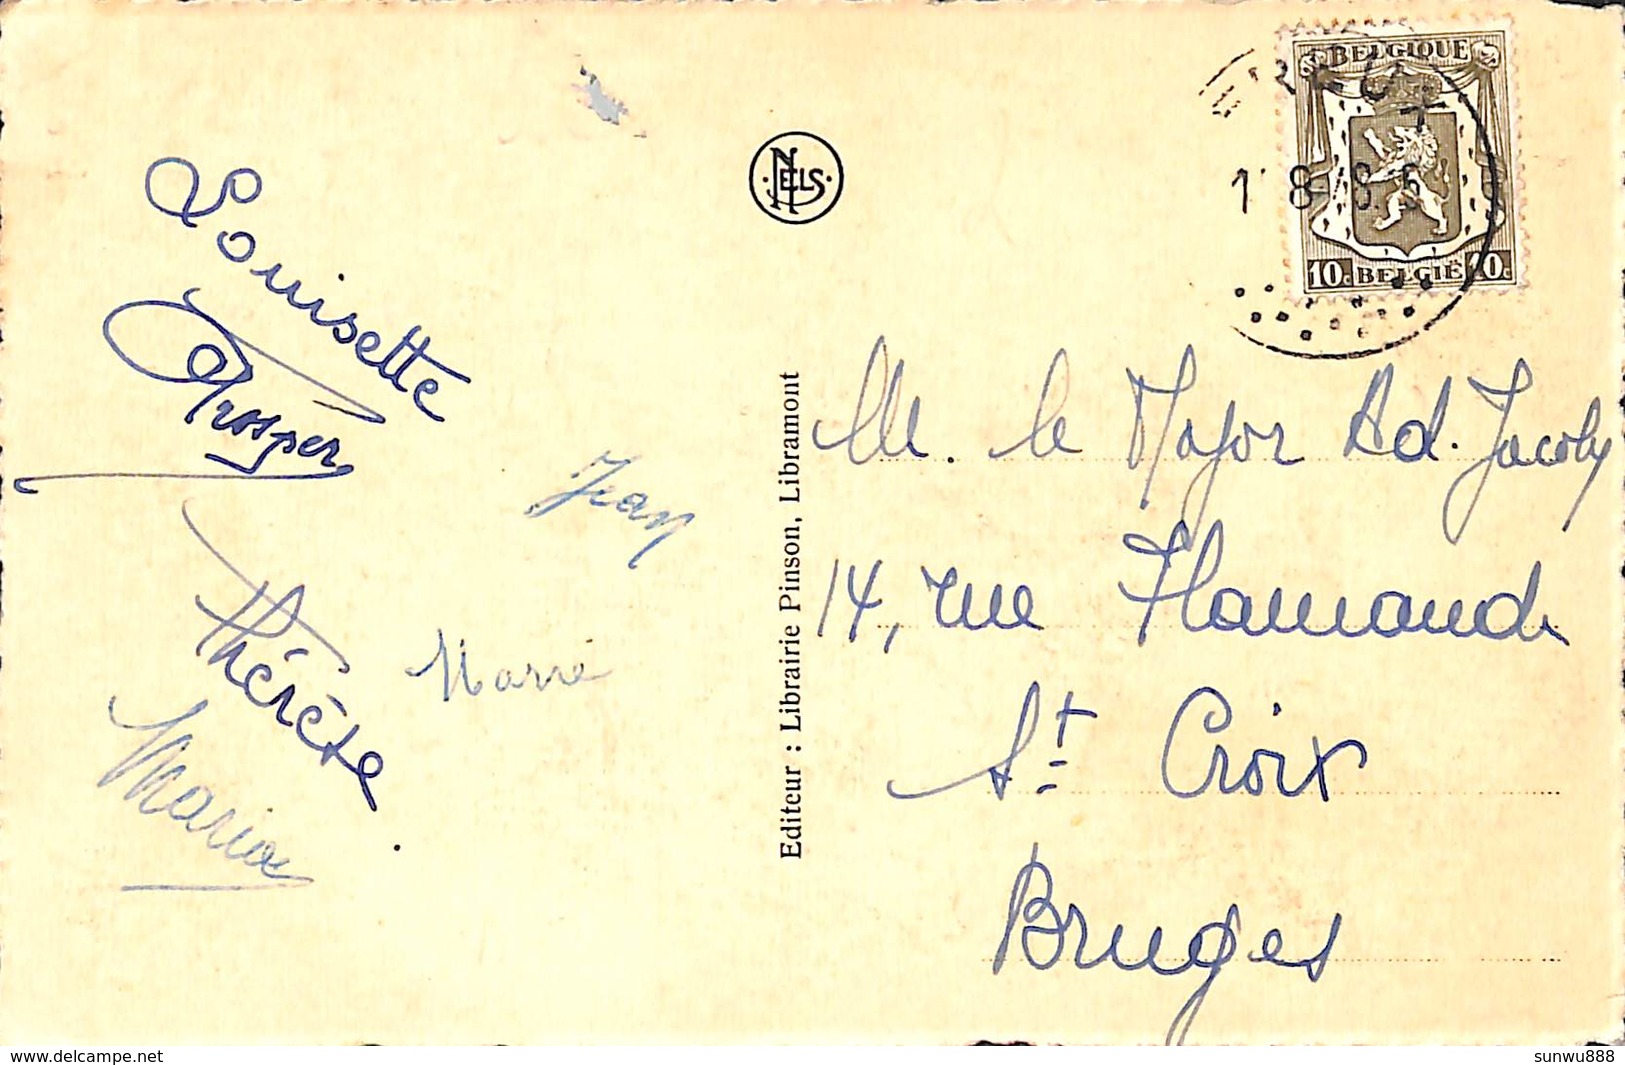 Louisette
Prosper
Jean
Thérèse.
Marie
Maria
NELS
Editeur : Librairie Pinson, Libramont
BELGIQUE
10c BELGIË 10c
M. le Major Ad. Jacoby
14, rue Flamande
St. Croix
Bruges
www.delcampe.net
sunwu888